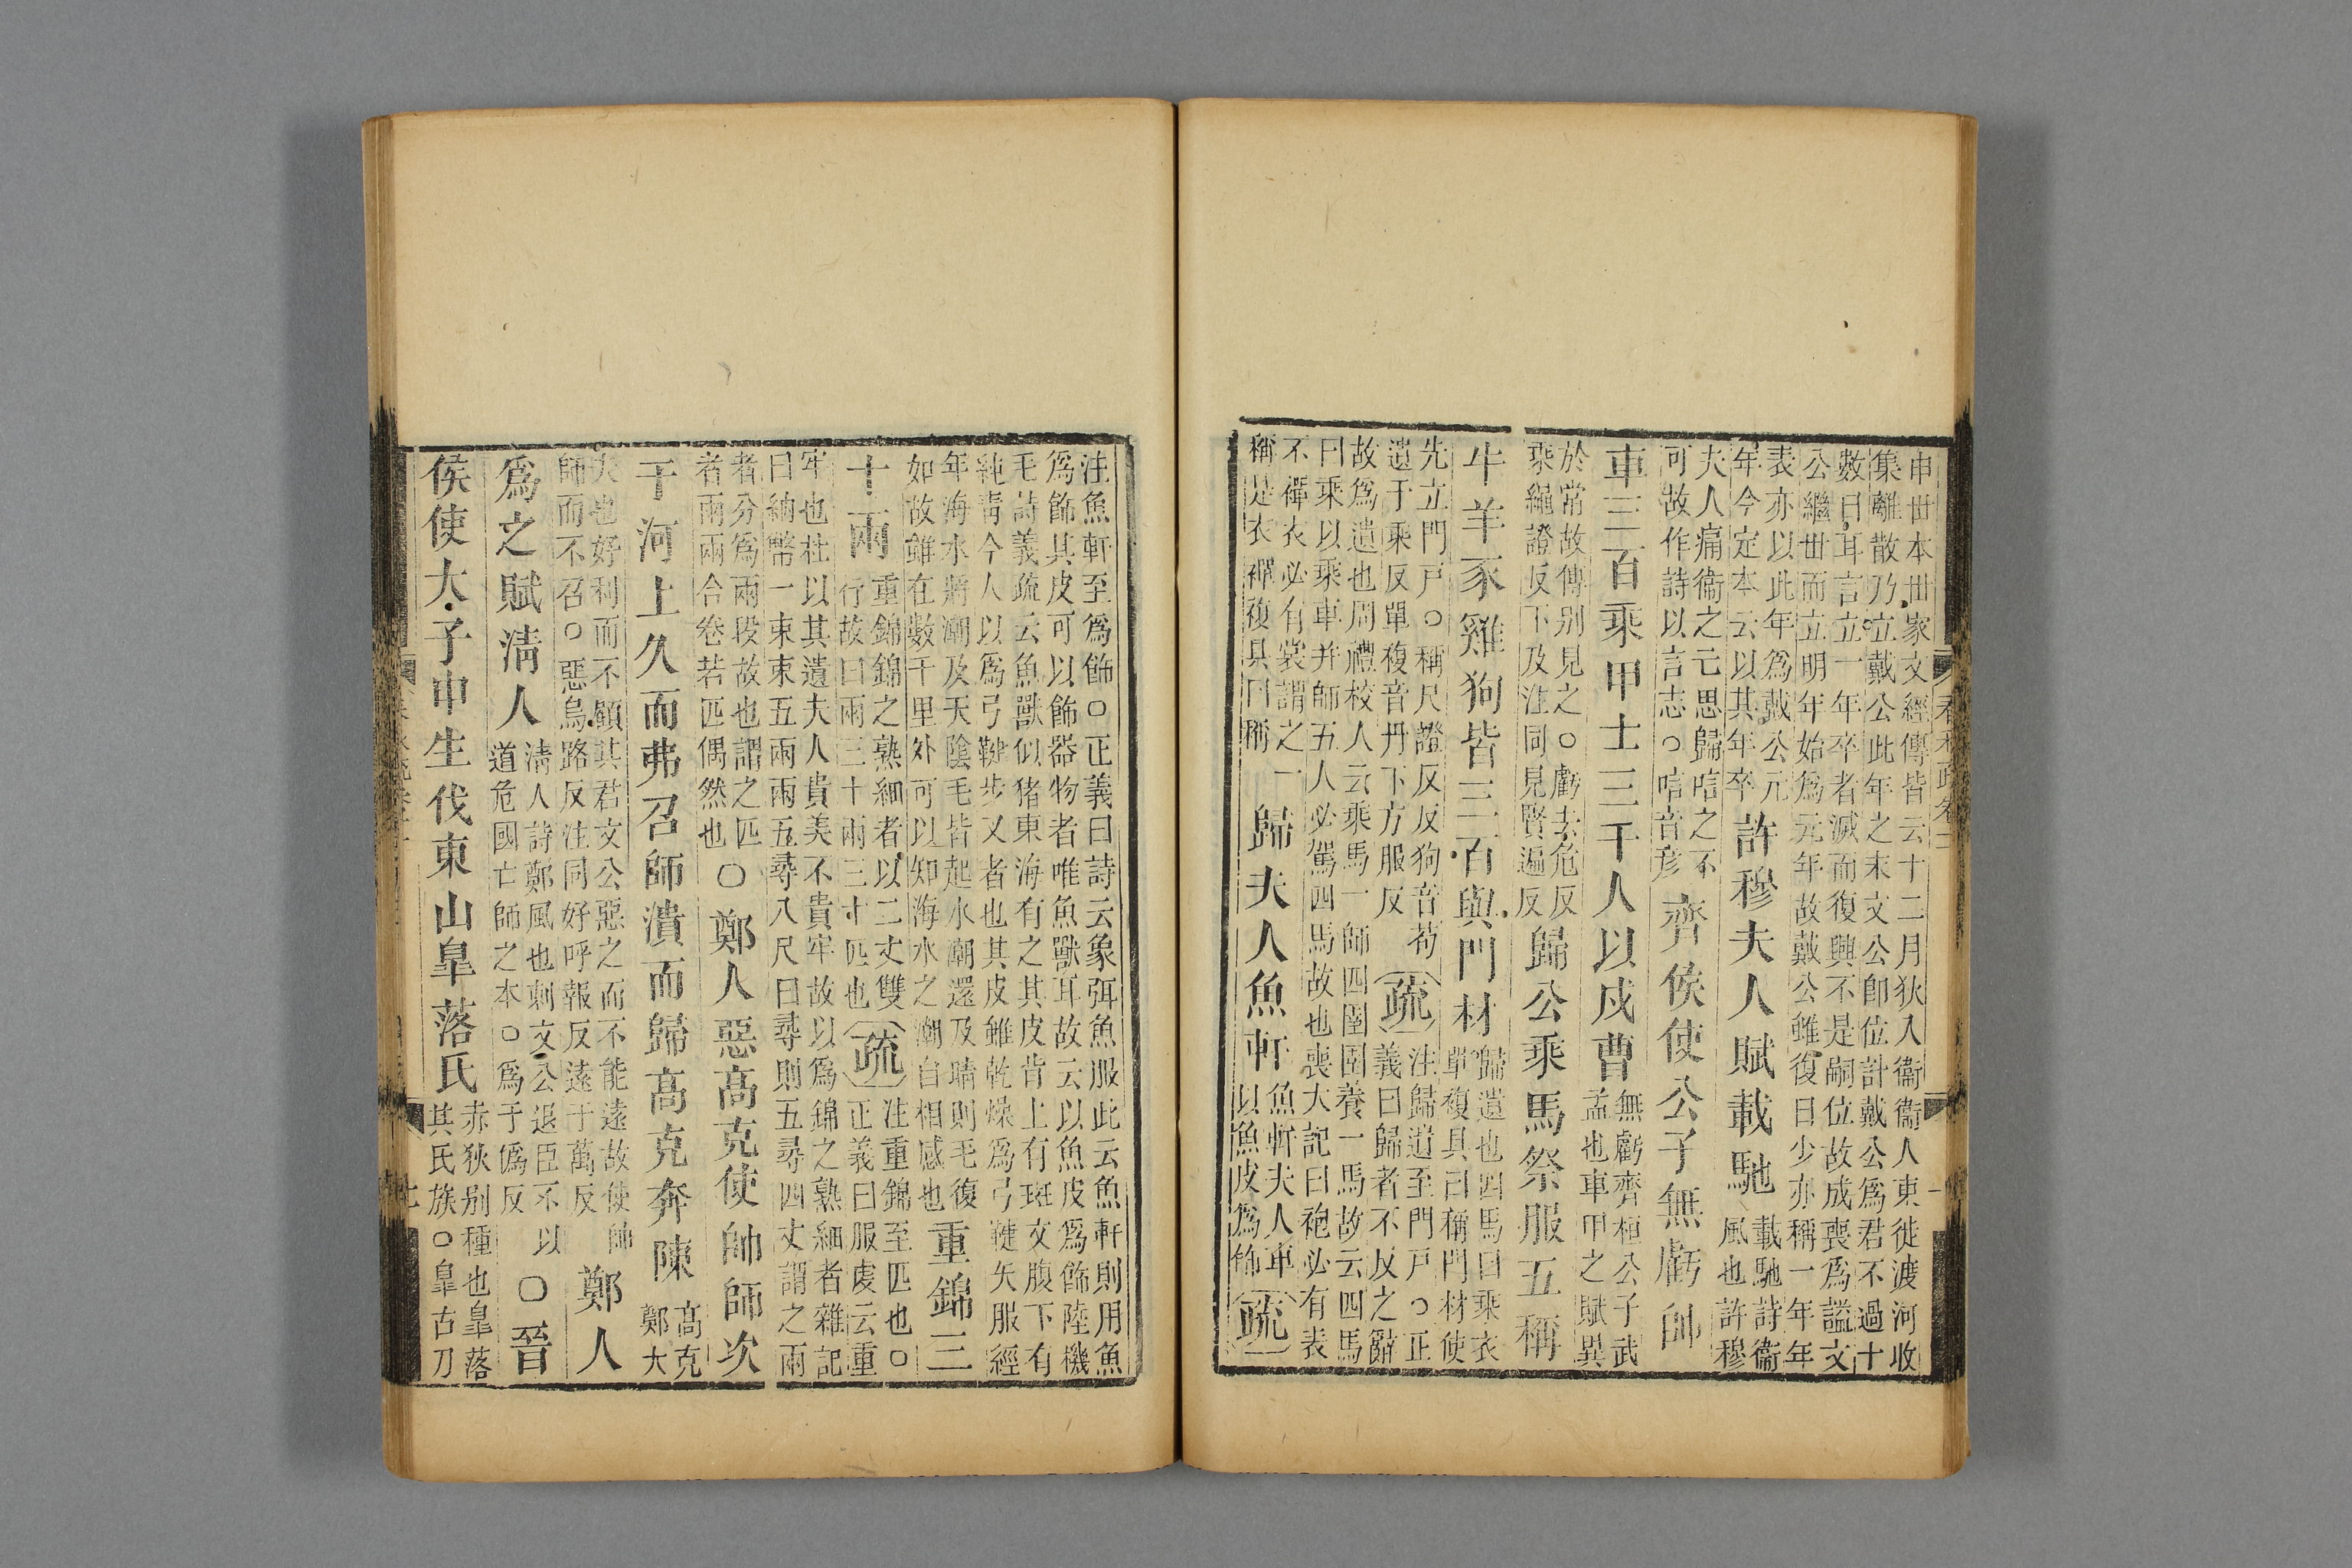 申世本世家文經傳皆云十二月狄入衞衞人東徙渡河收
集離散乃立戴公此年之末文公卽位計戴公爲君不過十
數日耳言立一年卒者滅而復興不是嗣位故成喪爲諡文
公繼世而立明年始爲元年故戴公雖復日少亦稱一年年
表亦以此年爲戴公元
年今定本云以其年卒
許穆夫人賦載馳
載馳詩衞
風也許穆
夫人痛衞之亡思歸唁之不
可故作詩以言志○唁音彦
齊侯使公子無虧帥
車三百乘甲士三千人以戍曹
無虧齊桓公子武
孟也車甲之賦異
於常故傳别見之○虧去危反
乘繩證反下及注同見賢遍反
歸公乘馬祭服五稱
牛羊豕雞狗皆三百與門材
歸遺也四馬曰乘衣
單複具曰稱門材使
先立門戸○稱尺證反反狗音苟
遺于乘反單複音丹下方服反
疏
注歸遺至門戸○正
義曰歸者不反之辭
故爲遺也周禮校人云乘馬一師四圉圉養一馬故云四馬
曰乘以乘車并師五人必駕四馬故也喪大記曰袍必有表
不襌衣必有裳謂之一
稱是衣襌複具曰稱
歸夫人魚軒
魚軒夫人車
以魚皮爲飾
疏
注魚軒至爲飾○正義曰詩云象弭魚服此云魚軒則用魚
爲飾其皮可以飾器物者唯魚獸耳故云以魚皮爲飾陸機
毛詩義疏云魚獸似猪東海有之其皮背上有斑文腹下有
純青今人以爲弓鞬步叉者也其皮雖乾燥爲弓鞬矢服經
年海水將潮及天陰毛皆起水潮還及晴則毛復
如故雖在數千里外可以知海水之潮自相感也
重錦三
十兩
重錦錦之熟細者以二丈雙
行故曰兩三十兩三十匹也
疏
注重錦至匹也○
正義曰服虔云重
牢也杜以其遺夫人貴美不貴牢故以爲錦之熟細者雜記
曰納幣一束束五兩兩五尋八尺曰尋則五尋四丈謂之兩
者分爲兩段故也謂之匹
者兩兩合卷若匹偶然也
○鄭人惡高克使帥師次
于河上久而弗召師潰而歸高克奔陳
高克
鄭大
夫也好利而不顧其君文公惡之而不能遠故使帥
師而不召○惡烏路反注同好呼報反遠于萬反
鄭人
爲之賦清人
清人詩鄭風也刺文公退臣不以
道危國亡師之本○爲于僞反
○晉
侯使大子申生伐東山皐落氏
赤狄别種也皐落
其氏族○皐古刀